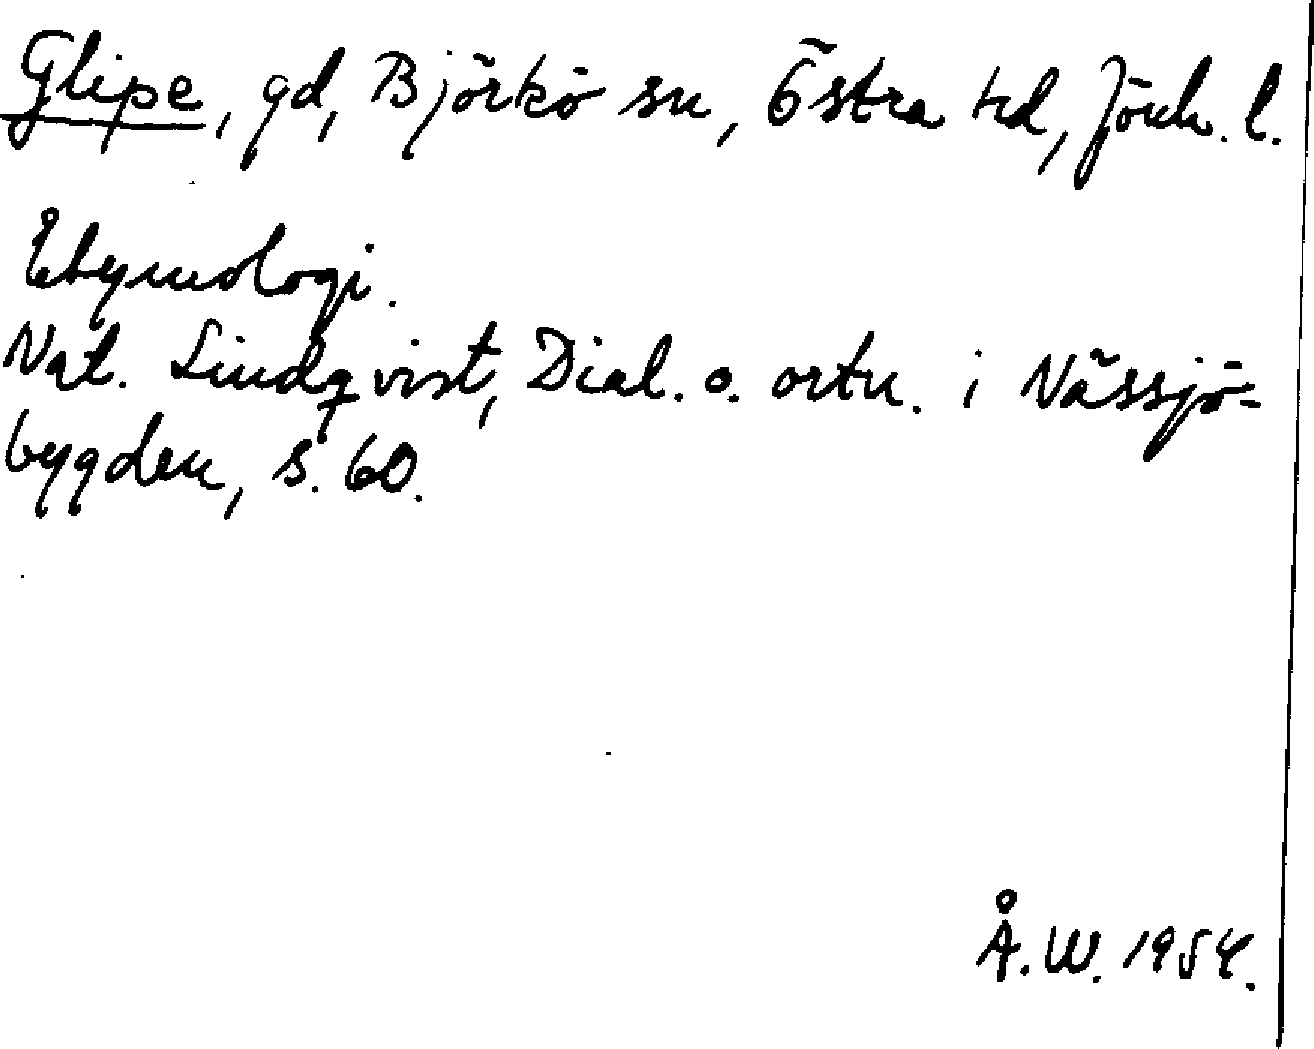 Glipe, gd, Björkö sn, Östra hd, Jönk. l.
Etymologi.
Nat. Lindqvist, Dial. o. ortn. i Nässjö-
bygden, s. 60.
Å. W. 1954.